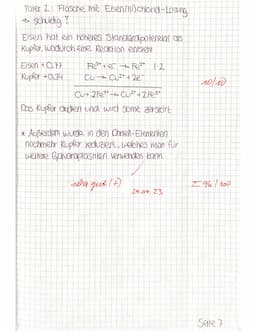 Täter 2: Flasche mit Eisen(III)chlorid-Lösung
→ schuldig?
Eisen hat ein höheres Standardpotenzial als
Kupfer, wodurch eine Reaktion entsteht
Eisen +0,77 Fe³⁺ + e⁻ → Fe²⁺ |·2
Kupfer +0,34 Cu → Cu²⁺ + 2e⁻
10/10
Cu + 2Fe³⁺ → Cu²⁺ + 2Fe²⁺
Das Kupfer oxidiert und wird somit zerstört
* Außerdem wurde in den Daniell-Elementen
nochmehr Kupfer reduziert, welches man für
weitere Galvanoplastiken verwenden kann.
sehr gut (+)
Σ 96/100
24.04.23
Seite 7